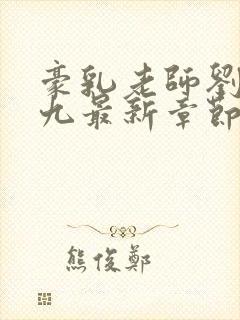 豪乳老師劉
九最新章節
熊俊鄭